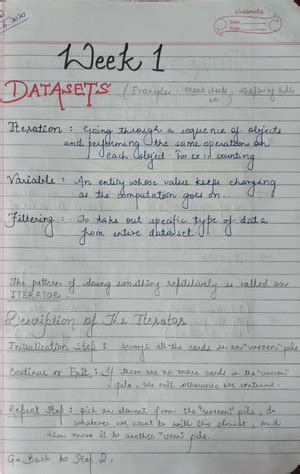 classmate
Date
Page
6.2020
Week 1
DATASETS (Example: Mark sheets, shopping bills
etc.)
Iteration : Going through a sequence of objects
and performing the same operation on
each object. For ex: counting
Variable : An entity whose value keeps changing
as the computation goes on.
Filtering : To take out specific type of data
from entire dataset.
The pattern of doing something repititively is called an
ITERATOR.
Description of The Iterator
Initialisation Step : arrange all the cards in an "unseen" pile
Continue or Exit : If there are no more cards in the "unseen"
pile, we exit otherwise we continue.
Repeat Step : pick an element from the "unseen" pile, do
whatever we want to with this element, and
then move it to another "seen" pile.
Go Back to Step 2.